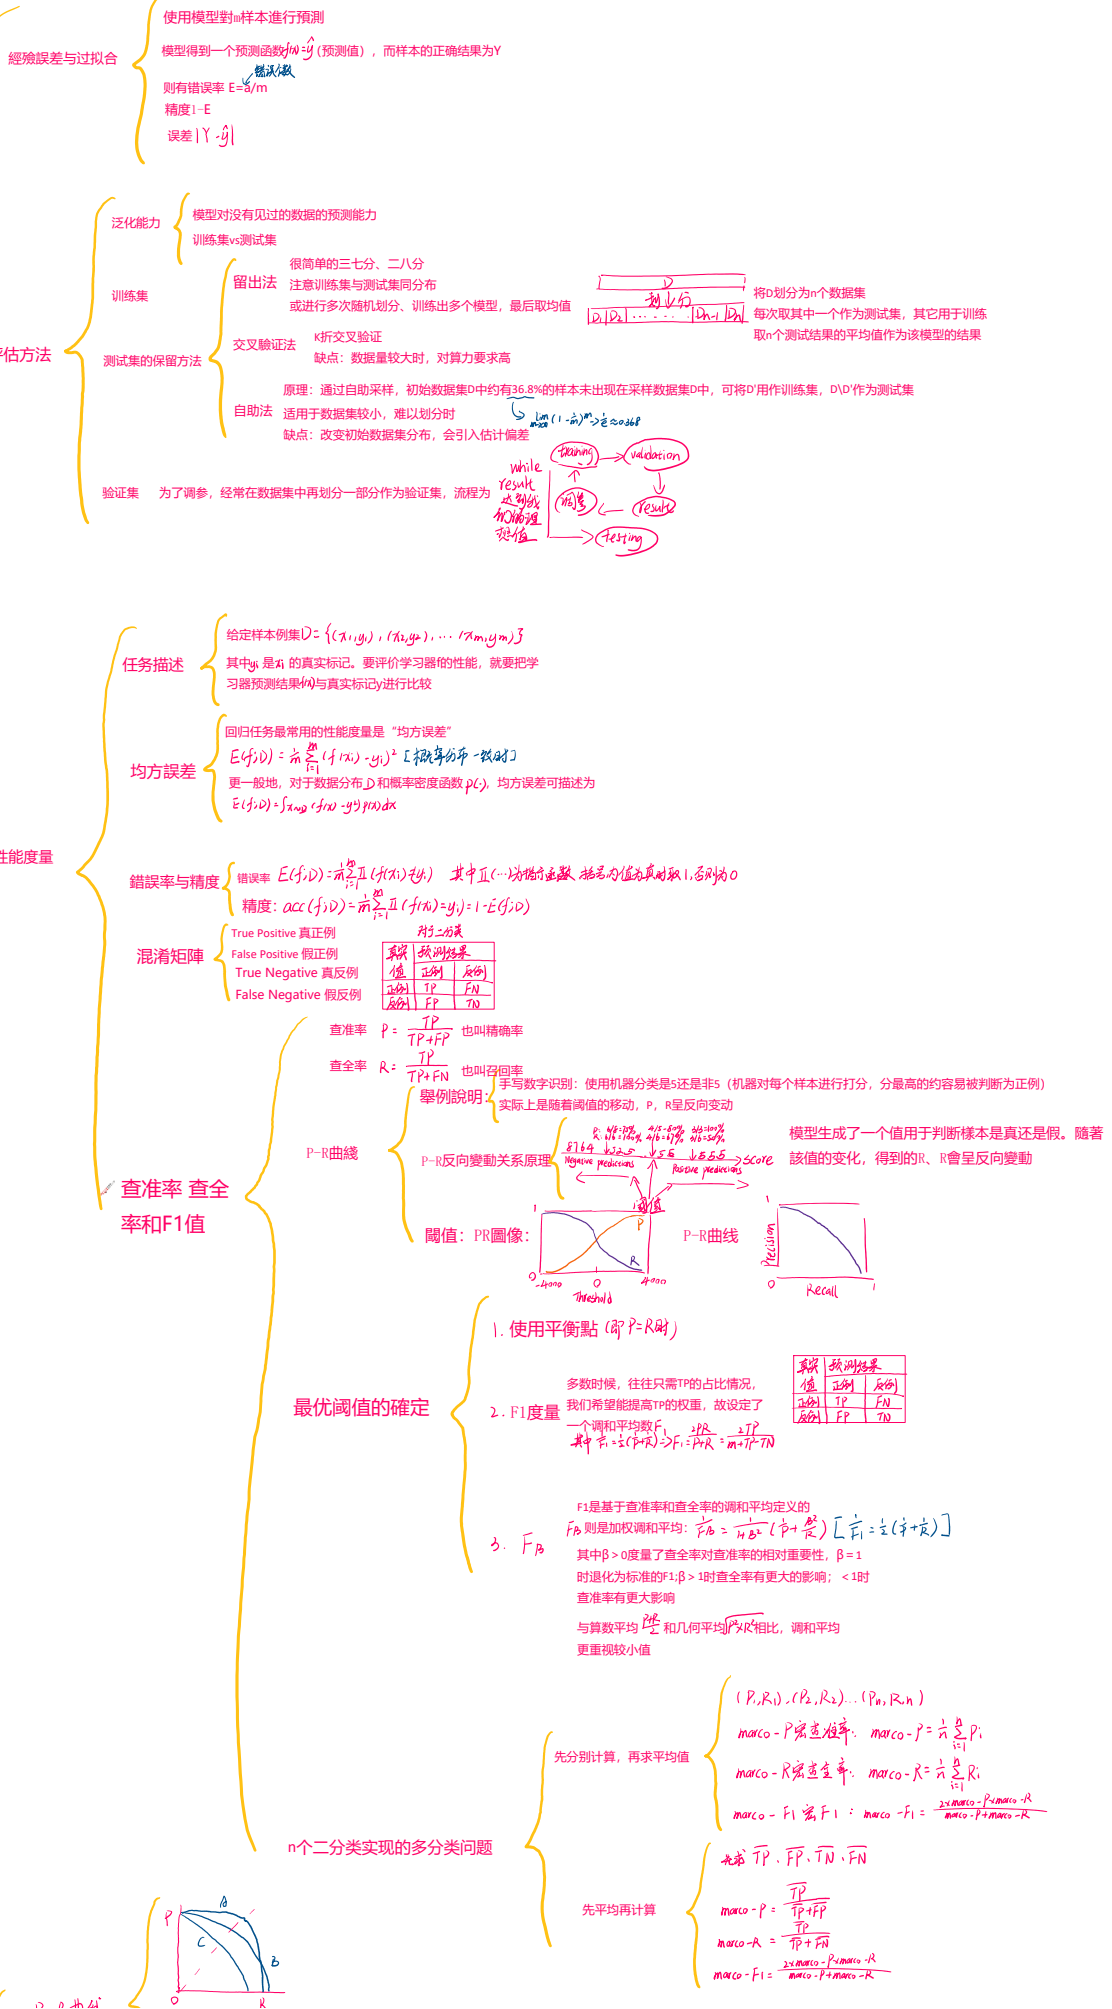 使用模型對m样本進行預測
經殮誤差与过拟合
模型得到一个预测函数f(x)=ŷ(预测值），而样本的正确结果为Y
错误个数
则有错误率 E=a/m
精度1-E
误差|Y-ŷ|
泛化能力
模型对没有见过的数据的预测能力
训练集vs测试集
训练集
评估方法
测试集的保留方法
留出法
很简单的三七分、二八分
注意训练集与测试集同分布
或进行多次随机划分、训练出多个模型，最后取均值
交叉驗证法
K折交叉验证
缺点：数据量较大时，对算力要求高
D
划分
D1 D2 ...... Dn-1 Dn
将D划分为n个数据集
每次取其中一个作为测试集，其它用于训练
取n个测试结果的平均值作为该模型的结果
自助法
原理：通过自助采样，初始数据集D中约有36.8%的样本未出现在采样数据集D中，可将D'用作训练集，D\D'作为测试集
适用于数据集较小，难以划分时
lim m→∞ (1-1/m)^m → 1/e ≈0.368
缺点：改变初始数据集分布，会引入估计偏差
验证集
为了调参，经常在数据集中再划分一部分作为验证集，流程为
while
result
达到我
们的理
想值
training
validation
result
调参
testing
性能度量
任务描述
给定样本例集D={(x1,y1),(x2,y2),...(xm,ym)}
其中yi 是xi 的真实标记。要评价学习器f的性能，就要把学
习器预测结果f(x)与真实标记y进行比较
均方誤差
回归任务最常用的性能度量是“均方误差”
E(f;D)=1/m Σ(i=1,m) (f(xi)-yi)² [概率分布一致时]
更一般地，对于数据分布 D 和概率密度函数 p(·)，均方误差可描述为
E(f;D)=∫x~D (f(x)-y)²p(x)dx
錯誤率与精度
错误率 E(f;D)=1/m Σ(i=1,m) Ⅱ(f(xi)≠yi) 其中Ⅱ(...)为指示函数 括号内值为真时取1,否则为0
精度：acc(f;D)=1/m Σ(i=1,m) Ⅱ(f(xi)=yi)=1-E(f;D)
混淆矩陣
True Positive 真正例
False Positive 假正例
True Negative 真反例
False Negative 假反例
对于二分类
真实值 预测结果
正例 反例
正例 TP FN
反例 FP TN
查准率 查全
率和F1值
查准率 P=TP/(TP+FP) 也叫精确率
查全率 R=TP/(TP+FN) 也叫召回率
P-R曲綫
舉例說明：
手写数字识别：使用机器分类是5还是非5（机器对每个样本进行打分，分最高的约容易被判断为正例）
实际上是随着阈值的移动，P，R呈反向变动
P-R反向變動关系原理
P: 6/8=75% 4/5=80% 3/3=100%
R: 6/6=100% 4/6=67% 3/6=50%
8764 ↓525 ↓55 ↓555 score
Negative predictions
Positive predictions
阈值
模型生成了一个值用于判断樣本是真还是假。隨著
該值的变化，得到的R、R會呈反向變動
閾值：PR圖像：
1
P
R
0
-4000
0
4000
Threshold
P-R曲线
1
Precision
0
Recall
1
最优阈值的確定
1. 使用平衡點 (即P=R时)
2. F1度量
多数时候，往往只需TP的占比情况，
我们希望能提高TP的权重，故设定了
一个调和平均数F1
其中 1/F1=1/2(1/P+1/R)=>F1=2PR/(P+R)=2TP/(m+TP-TN)
真实值 预测结果
正例 反例
正例 TP FN
反例 FP TN
3. Fβ
F1是基于查准率和查全率的调和平均定义的
Fβ 则是加权调和平均：1/Fβ=1/(1+β²)(1/P+β²/R) [1/F1=1/2(1/P+1/R)]
其中β＞0度量了查全率对查准率的相对重要性，β＝1
时退化为标准的F1;β＞1时查全率有更大的影响；＜1时
查准率有更大影响
与算数平均 (P+R)/2 和几何平均√(P²×R²)相比，调和平均
更重视较小值
n个二分类实现的多分类问题
先分别计算，再求平均值
(P1,R1),(P2,R2)...(Pn,Rn)
marco-P宏查准率: marco-P=1/n Σ(i=1,n) Pi
marco-R宏查全率: marco-R=1/n Σ(i=1,n) Ri
marco-F1 宏F1: marco-F1=(2×marco-P×marco-R)/(marco-P+marco-R)
先平均再计算
先求 T̅P̅、F̅P̅、T̅N̅、F̅N̅
marco-P=T̅P̅/(T̅P̅+F̅P̅)
marco-R=T̅P̅/(T̅P̅+F̅N̅)
marco-F1=(2×marco-P×marco-R)/(marco-P+marco-R)
P
A
C
B
0
R